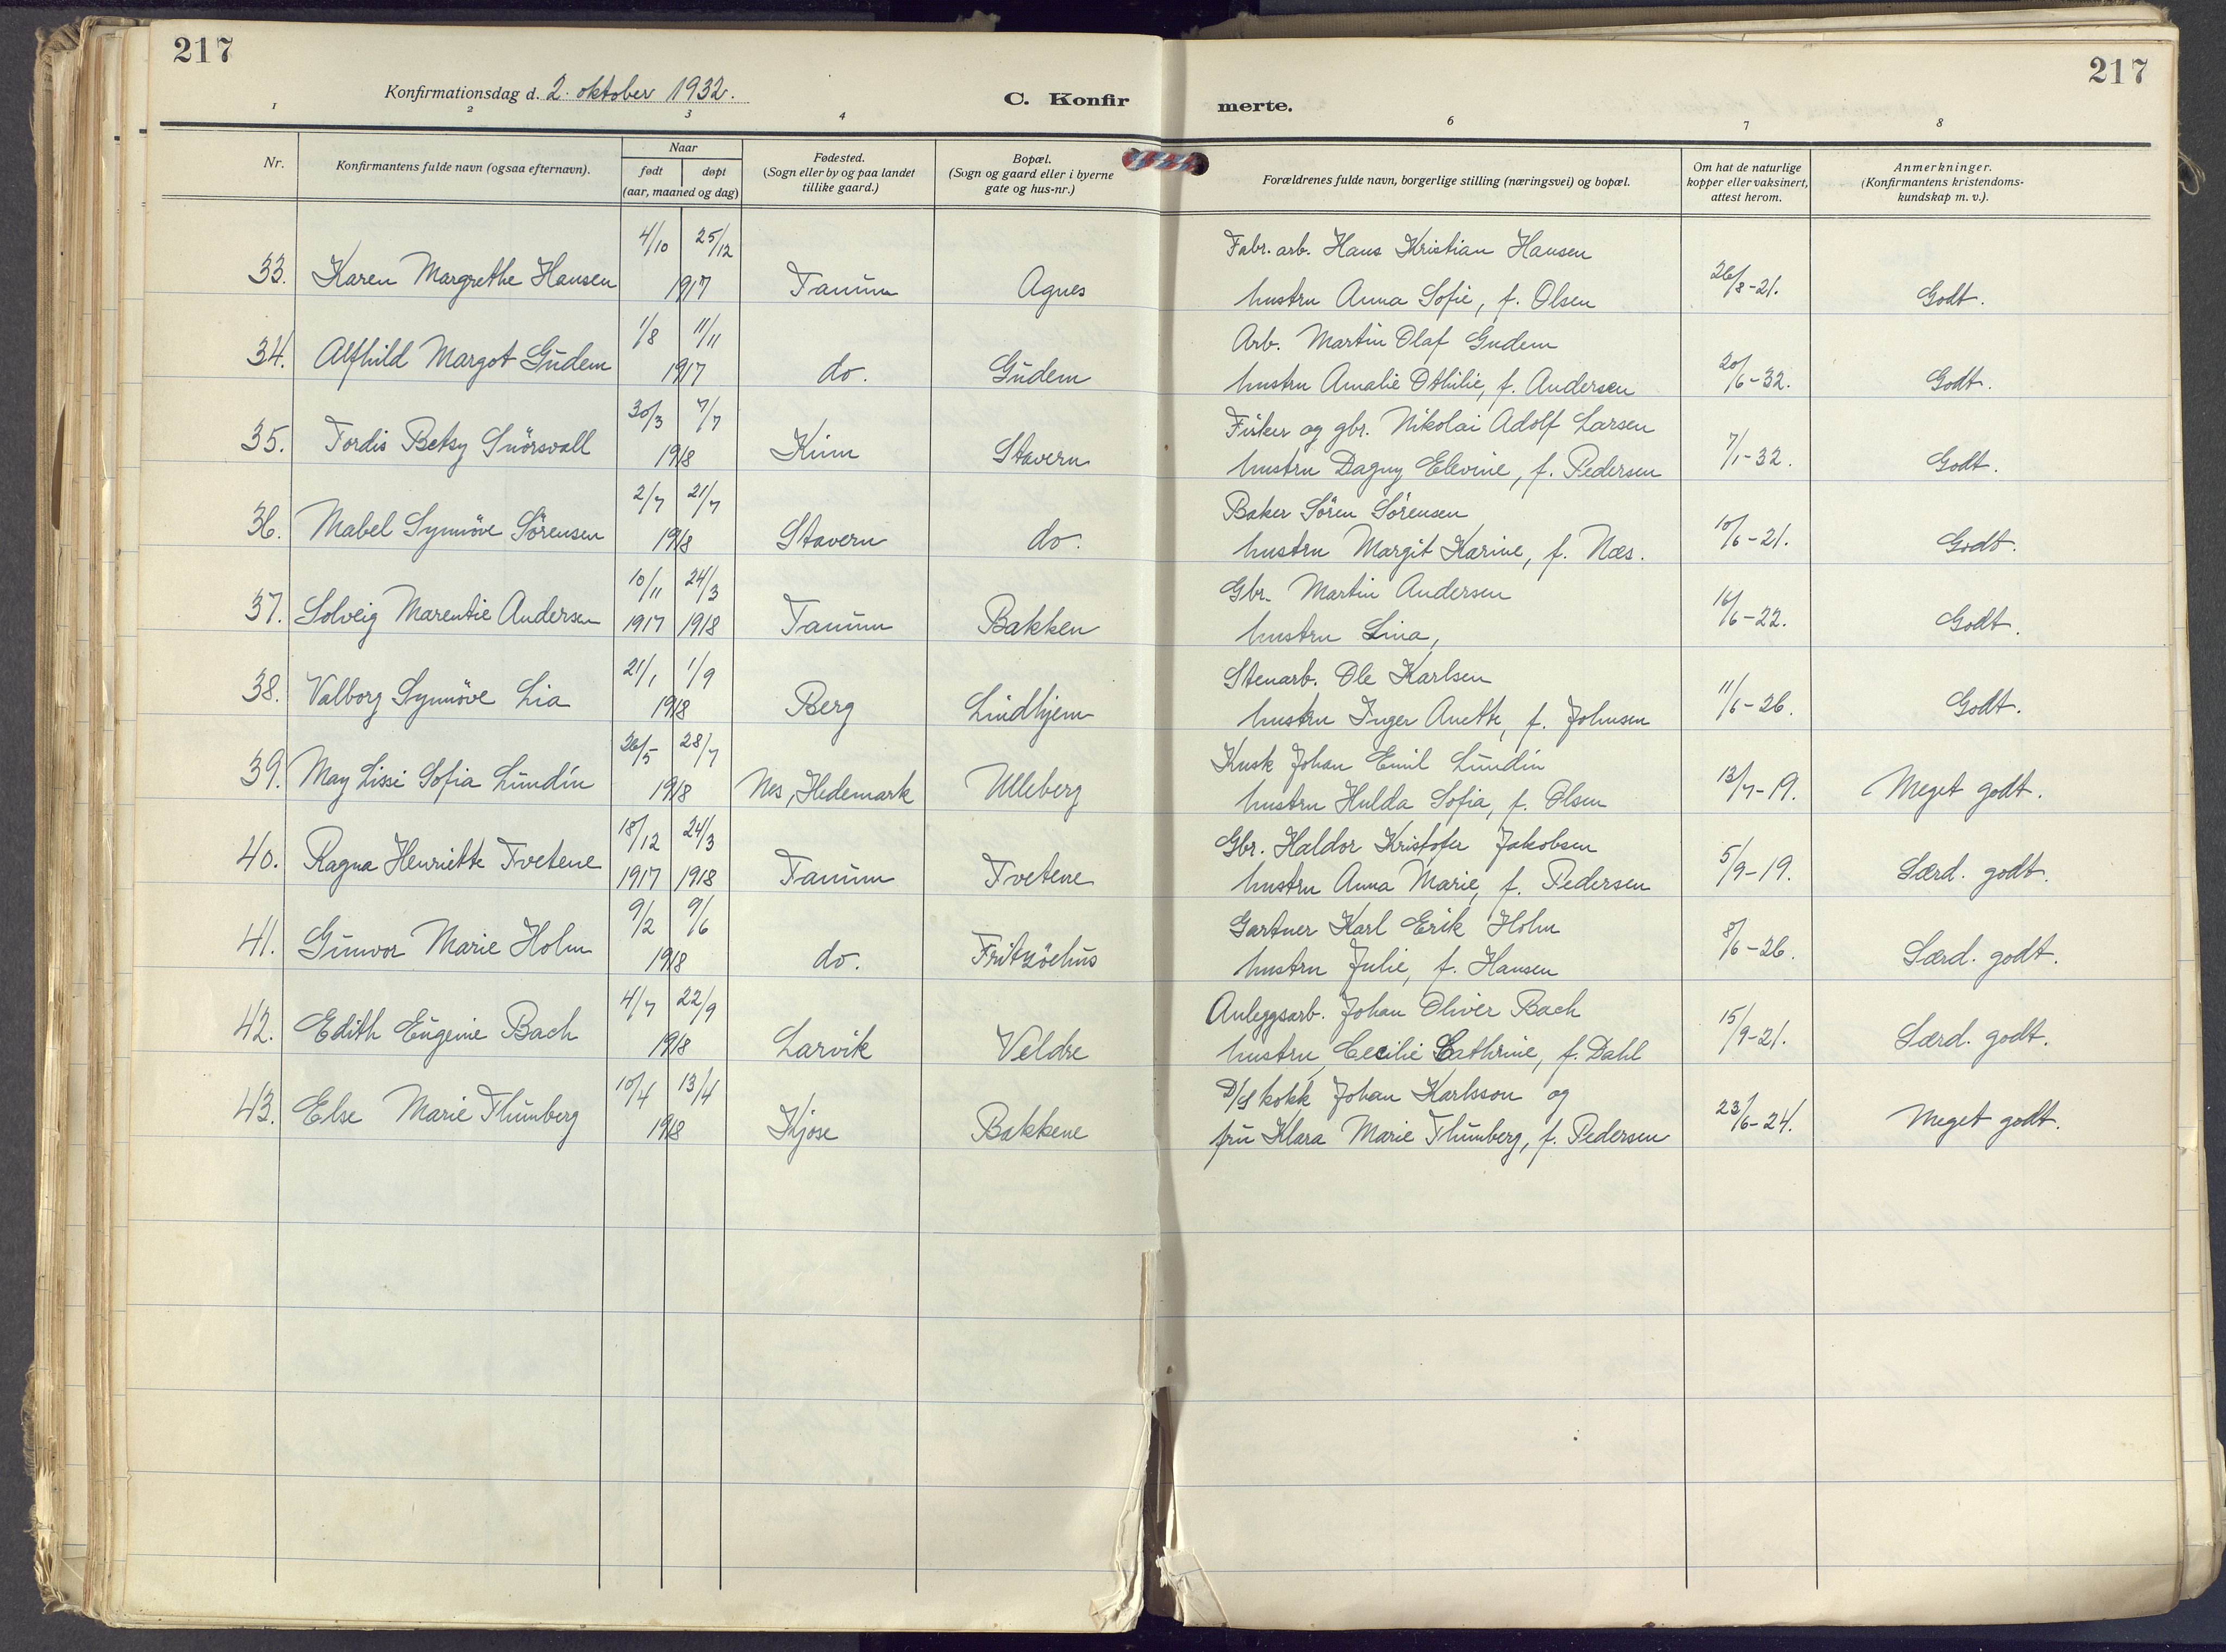 217
217
Konfirmationsdag d. 2. oktober 1932.
C. Konfir merte.
1 2 3 4 6 7 8
Nr.
Konfirmantens fulde navn (ogsaa efternavn).
Naar
født døpt
(aar, maaned og dag)
Fødested.
(Sogn eller by og paa landet
tillike gaard.)
Bopæl.
(Sogn og gaard eller i byerne
gate og hus-nr.)
Forældrenes fulde navn, borgerlige stilling (næringsvei) og bopæl.
Om hat de naturlige
kopper eller vaksinert,
attest herom.
Anmerkninger.
(Konfirmantens kristendoms-
kundskap m. v.).
4/10 25/12 Fabr. arb. Hans Kristian Hansen
33. Karen Margrethe Hansen 1917 Tanum Agnes hustru Anna Sofie, f. Olsen 26/8-21. Godt.
1/8 11/11 Arb. Martin Olaf Gudem
34. Alfhild Margot Gudem 1917 do. Gudem hustru Amalie Othilie, f. Andersen 20/6-32. Godt.
30/3 7/7 Fisker og gbr. Nikolai Adolf Larsen
35. Tordis Betsy Snörsvall 1918 Kium Stavern hustru Dagny Elevine, f. Pedersen 7/1-32. Godt.
2/7 21/7 Baker Sören Sörensen
36. Mabel Synnöve Sörensen 1918 Stavern do. hustru Margit Karine, f. Næs. 10/6-21. Godt.
10/11 24/3 Gbr. Martin Andersen
37. Solveig Marentie Andersen 1917 1918 Tanum Bakken hustru Lina, 16/6-22. Godt.
21/1 1/9 Stenarb. Ole Karlsen
38. Valborg Synnöve Lia 1918 Berg Lindhjem hustru Inger Anette, f. Johnsen 11/6-26. Godt.
26/5 28/7 Kusk Johan Emil Lundin
39. May Lissi Sofia Lundin 1918 Nes, Hedemark Ulleberg hustru Hulda Sofia, f. Olsen 13/7-19. Meget godt.
18/12 24/3 Gbr. Haldor Kristofer Jakobsen
40. Ragna Henriette Tvetene 1917 1918 Tanum Tvetene hustru Anna Marie, f. Pedersen 5/9-19. Særd. godt.
9/2 9/6 Gartner Karl Erik Holm
41. Gunvor Marie Holm 1918 do. Fritzöehus hustru Julie, f. Hansen 8/6-26. Særd. godt.
4/7 22/9 Anleggsarb. Johan Oliver Bach
42. Edith Eugenie Bach 1918 Larvik Veldre hustru Cecilie Cathrine, f. Dahl 15/9-21. Særd. godt.
10/4 13/4 D/S kokk Johan Karlsson og
43. Else Marie Thunberg 1918 Kjose Bakkene fru Klara Marie Thunberg, f. Pedersen 23/6-24. Meget godt.